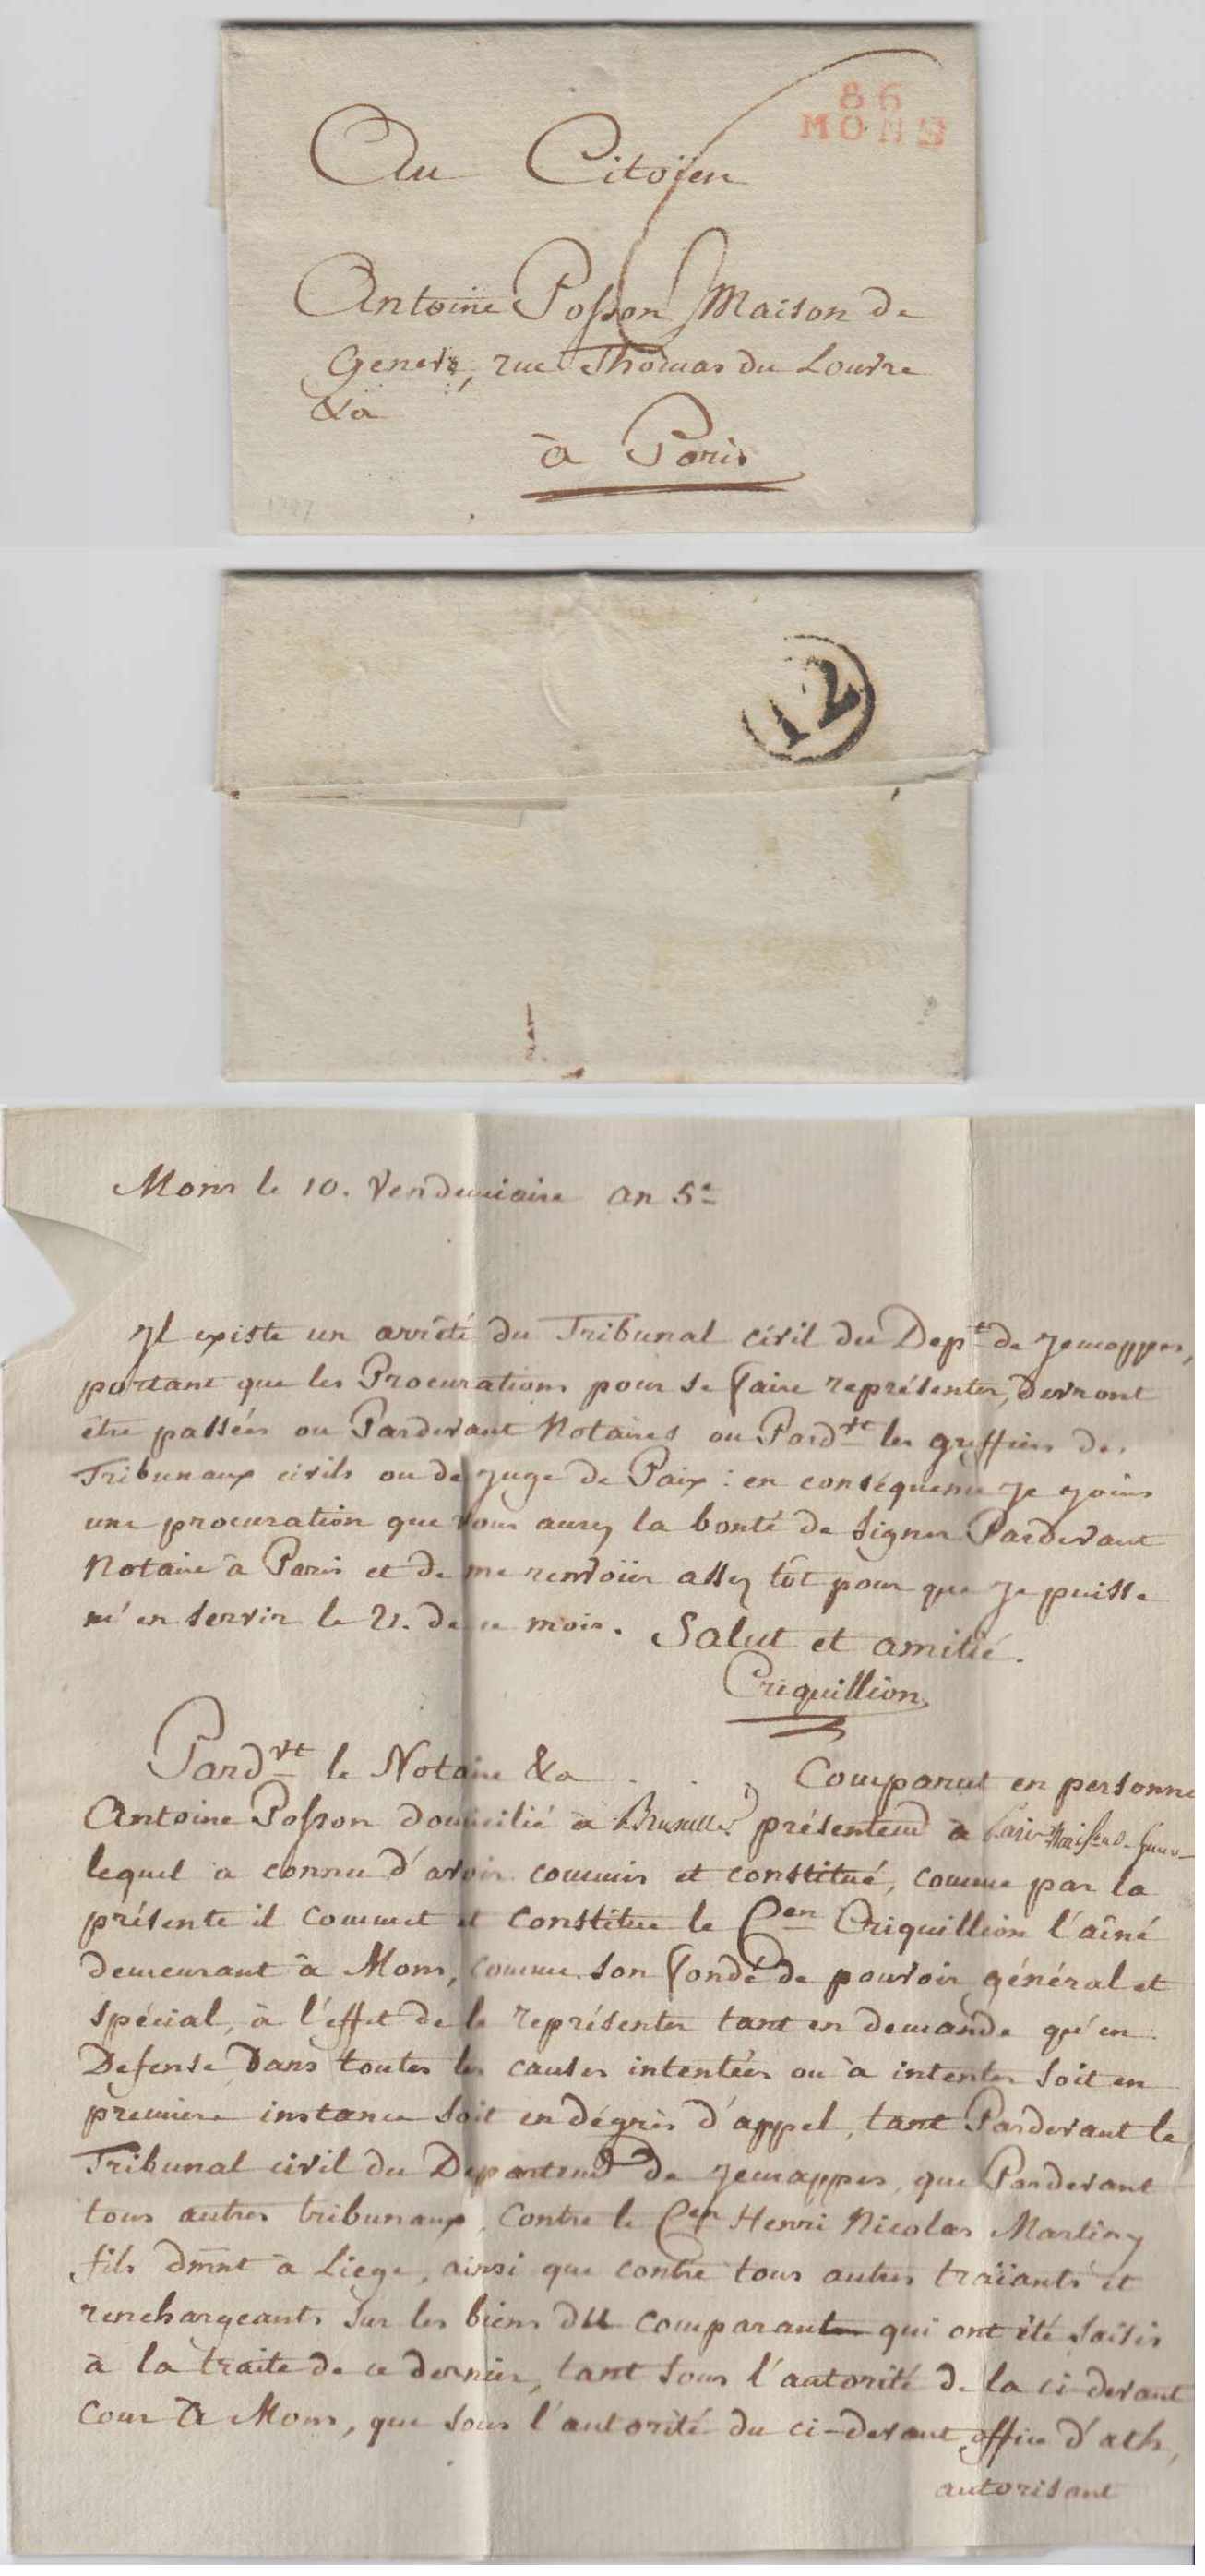 86
MONS
Au Citoÿen
Antoine Posson Maison de
Geneve, rue Thomas du Louvre
&a
à Paris
12
Mons le 10. Vendemiaire an 5e
Jl existe un arrêté du Tribunal civil du Dept de Jemappes,
portant que les Procurations pour se faire représenter, devront
être passées ou Pardevant Notaires ou Pardvt les greffiers des
Tribunaux civils ou de Juge de Paix : en conséquence Je joins
une procuration que vous aurez la bonté de signer Pardevant
Notaire à Paris et de me renvoïer assez tôt pour que Je puisse
m'en servir le 21. de ce mois. Salut et amitié.
Criquillion
Pardvt le Notaire &a . . , Comparut en personne
Antoine Posson domicilié à Bruxelles présentemt à Paris
lequel a connu d'avoir commis et constitué, comme par la
présente il commet et constitue le Cen Criquillion l'aîné
demeurant à Mons, comme son fondé de pouvoir général et
spécial, à l'effet de le représenter tant en demande qu'en
Defense Dans toutes les causes intentées ou à intenter soit en
premiere instance soit en dégrès d'appel, tant Pardevant le
Tribunal civil du Departemt de Jemappes, que Pardevant
tous autres tribunaux, Contre le Cen Henri Nicolas Martiny
fils dmnt à Liege, ainsi que contre tous autres traïants et
renchargeants sur les biens du comparant qui ont été saisis
à la traite de ce dernier, tant sous l'autorité de la ci-devant
Cour à Mons, que sous l'autorité du ci-devant office d'ath,
autorisant